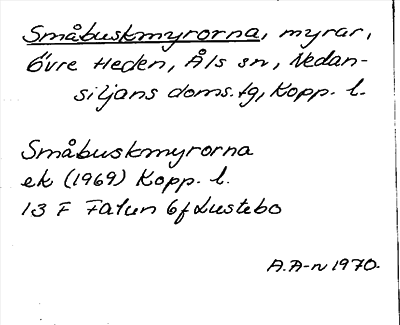 Småbuskmyrorna, myrar,
Övre Heden, Åls sn, Nedan-
siljans doms.tg, Kopp. l.
Småbuskmyrorna
ek (1969) Kopp. l.
13 F Falun 6f Lustebo
A.A-n 1970.